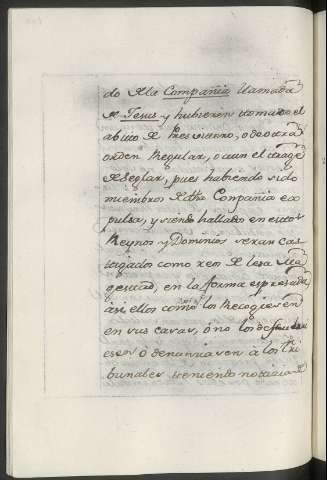 do de la Compañia llamada
de Jesus y hubieren tomado el
abito de Presvitero, o de otra
orden Regular, o aun el trage
de Seglar, pues habiendo sido
miembros de dha Compañia ex
pulsa, y siendo hallados en estos
Reynos y Dominios seran cas
tigados como reos de lesa Ma
gestad, en la forma espresada
asi ellos como los Recogiesen
en sus casas, ó no los descubri
esen ó denunciasen à los tri
bunales teniendo noticia de